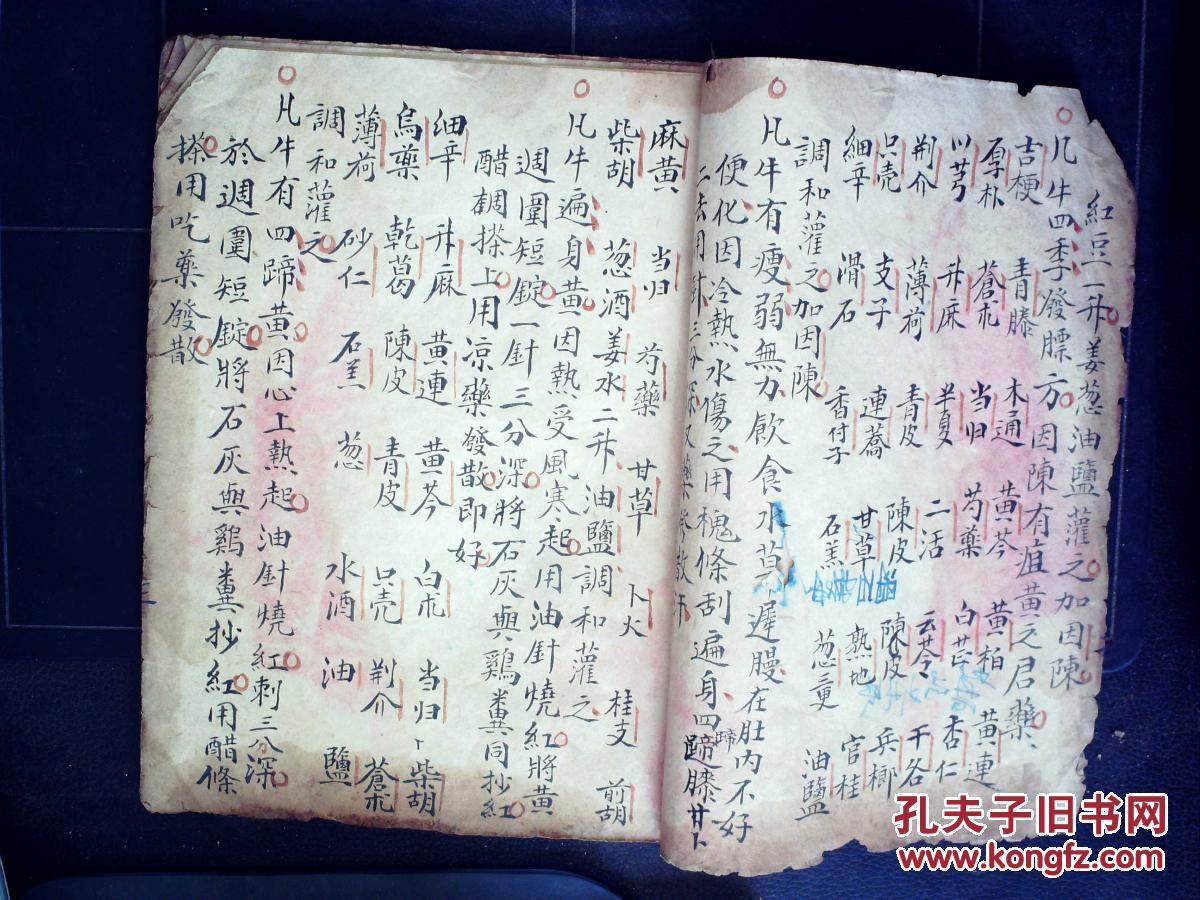 紅豆一升姜葱油鹽灌之加因陳
凡牛四季發膘方因陳有疽黄之君藥
吉梗 青滕 木通 黄芩 黄柏 黄連
厚朴 蒼朮 当归 芍藥 白芷 杏仁
以芎 升麻 半夏 二活 云苓 干各
荆介 薄荷 青皮 陳皮 陳皮 兵榔
只壳 支子 連蕎 甘草 熟地 官桂
細辛 滑石 香付子 石羔 葱二更 油鹽
調和灌之加因陳
凡牛有瘦弱無力飲食水草遲朡在肚内不好
便化因冷熱水傷之用槐條刮遍身四蹄膝廿卜
二法用針三分深 藥發散
麻黄 当归 芍藥 甘草 卜火 桂支 前胡
柴胡 葱酒姜水二升油鹽調和灌之
凡牛遍身黄因熱受風寒起用油針燒紅將黄
週圍短錠一針三分深將石灰與鷄糞同抄紅
醋調搽上用凉藥發散即好
細辛 升麻 黄連 黄芩 白朮 当归 柴胡
烏藥 乾葛 陳皮 青皮 只壳 荆介 蒼朮
薄荷 砂仁 石羔 葱 水酒 油 鹽
調和灌之
凡牛有四蹄黄因心上熱起油針燒紅刺三分深
於週圍短錠將石灰與鷄糞抄紅用醋條
搽用吃藥發散
孔夫子旧书网
www.kongfz.com